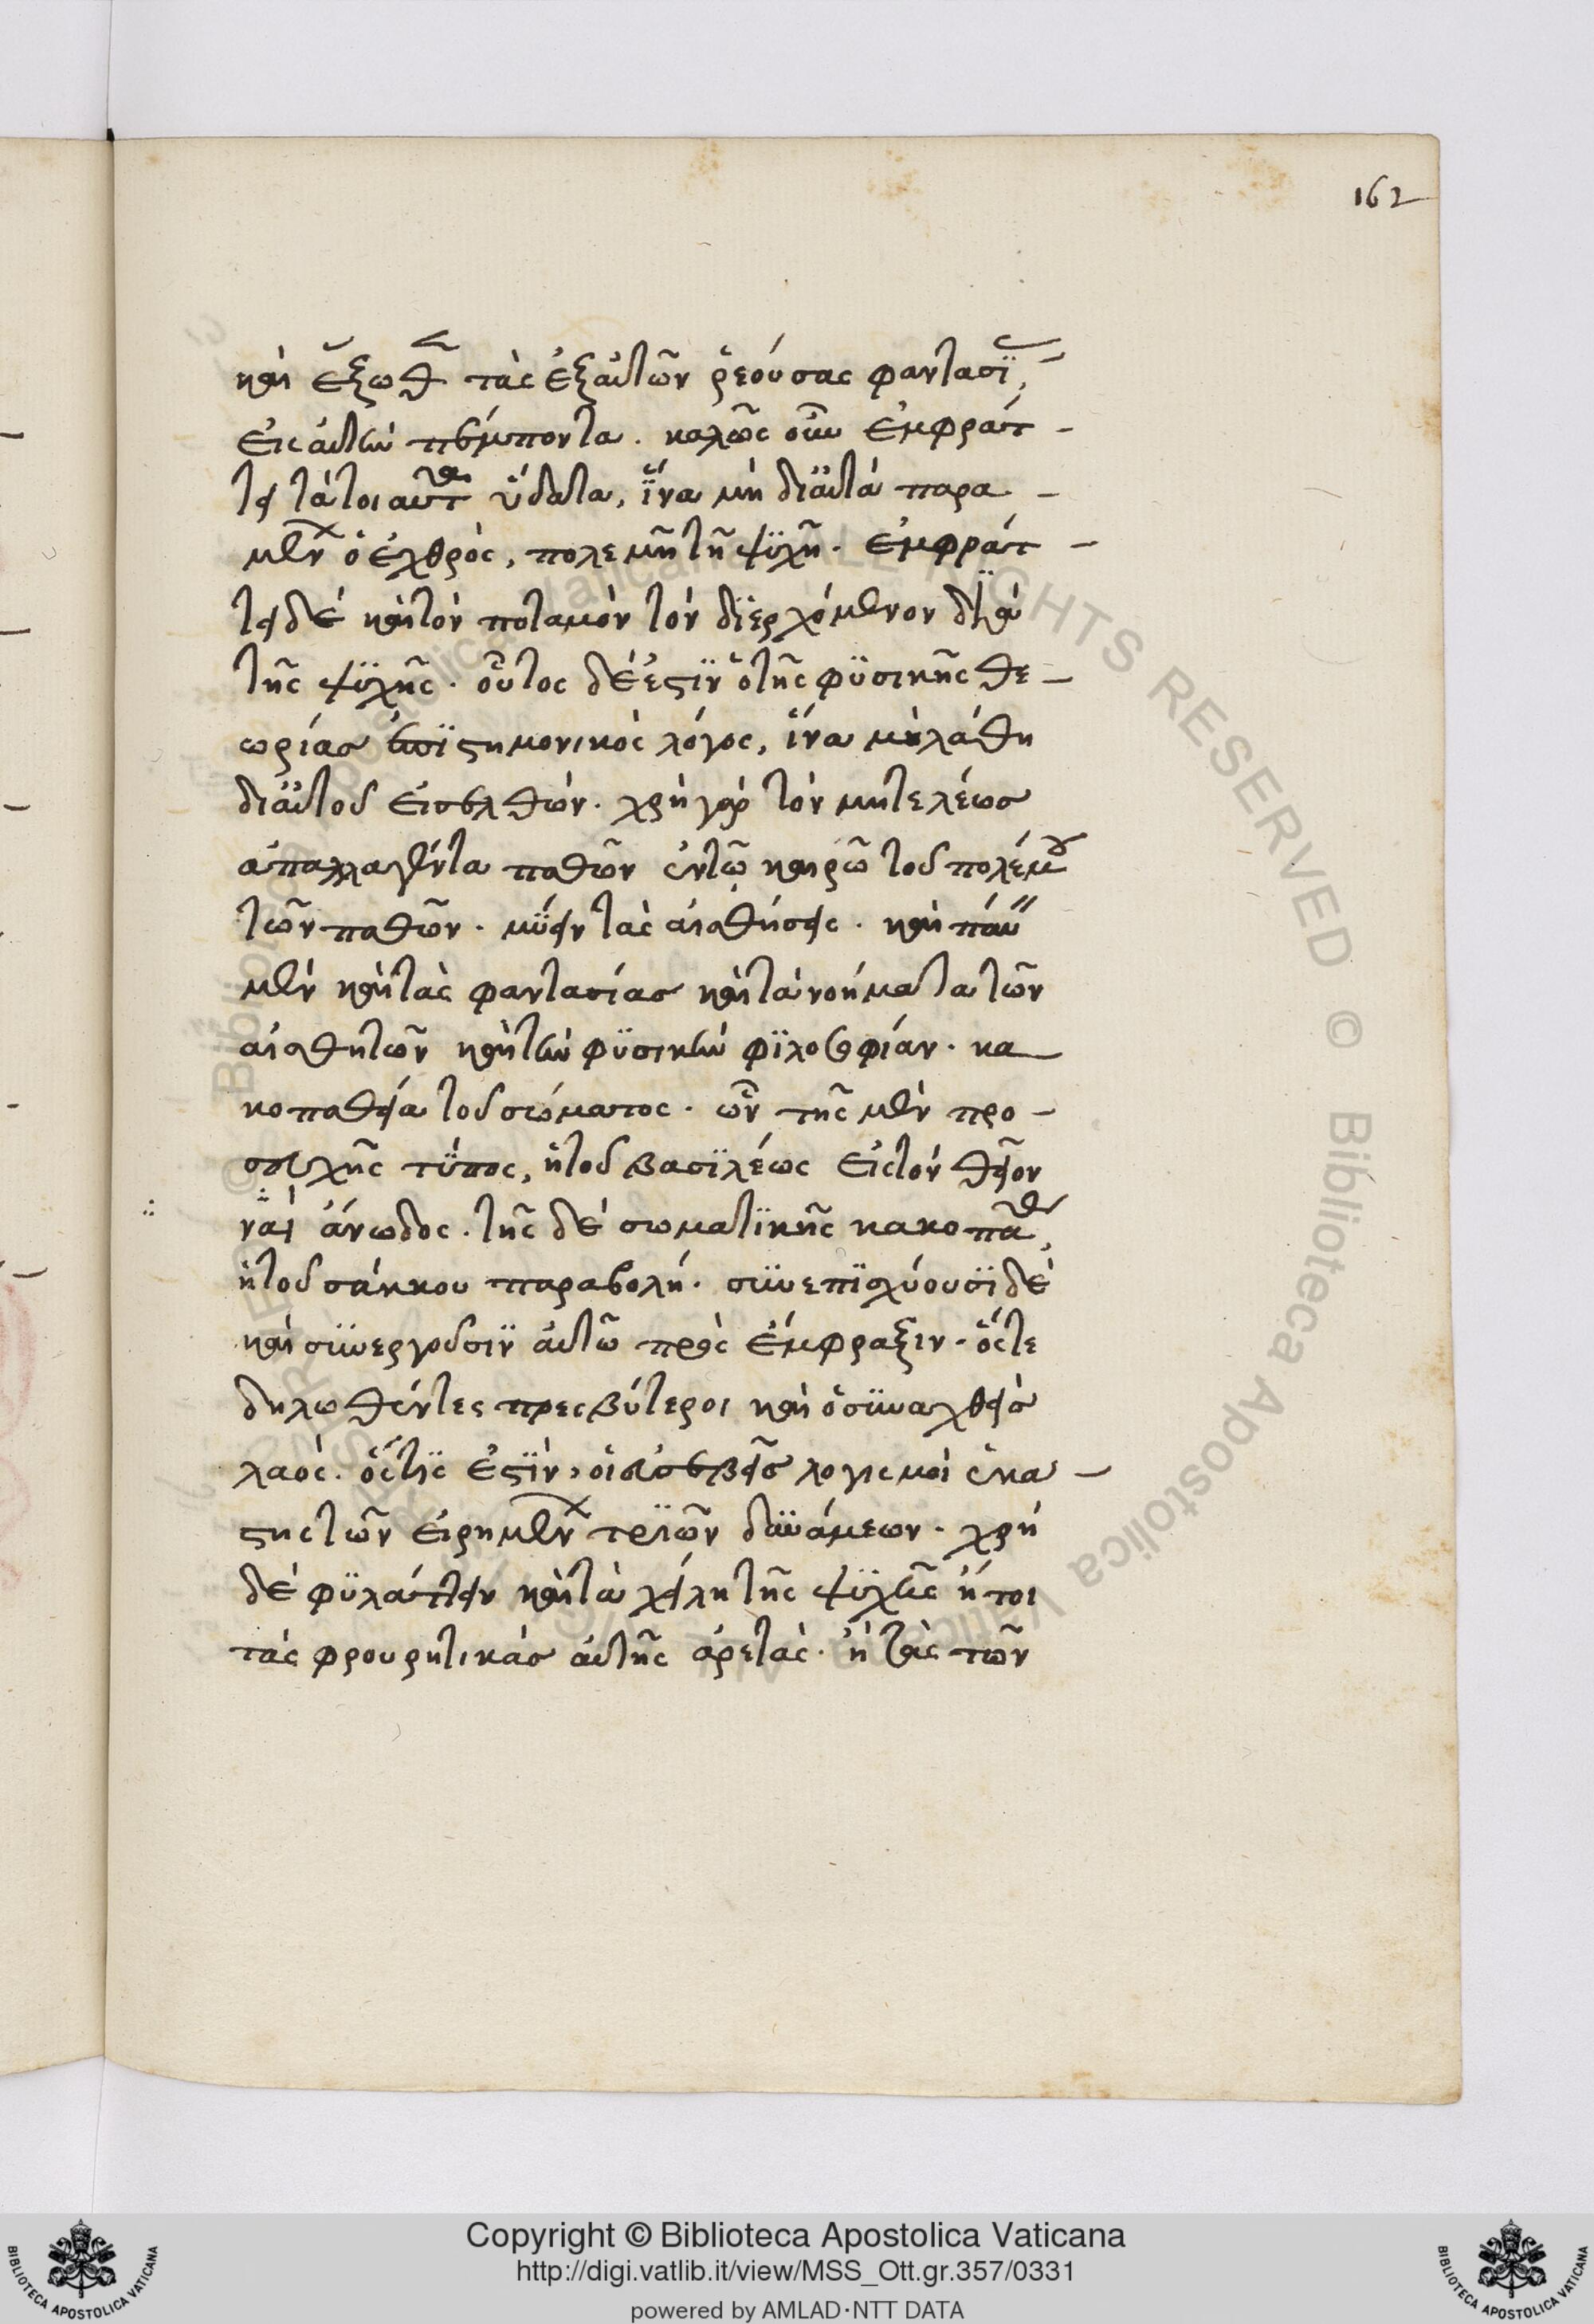 162
καὶ ἔξωθεν τὰς ἐξ αὐτῶν ῥεούσας φαντασίας
εἰς αὐτὴν πέμποντα. καλῶς οὖν ἐμφράτ-
τει τὰ τοιαῦτα ὕδατα, ἵνα μὴ δι' αὐτὰ παρα-
μένων ὁ ἐχθρὸς, πολεμῆ τῆ ψυχῆ. ἐμφράτ-
τει δὲ καὶ τὸν ποταμὸν τὸν διερχόμενον διὰ
τῆς ψυχῆς. οὗτος δέ ἐστιν ὁ τῆς φυσικῆς θε-
ωρίας ἐπιστημονικὸς λόγος, ἵνα μὴ λάθη
δι' αὐτοῦ εἰσελθών. χρὴ γὰρ τὸν μὴ τελέως
ἀπαλλαγέντα παθῶν ἐν τῶ καιρῶ τοῦ πολέμου
τῶν παθῶν. μύειν τὰς αἰσθήσεις. καὶ πάν
μὲν καὶ τὰς φαντασίας καὶ τὰ νοήματα τῶν
αἰσθητῶν καὶ τὴν φυσικὴν φιλοσοφίαν. κα-
κοπαθεία τοῦ σώματος. ὧν τῆς μὲν προ-
σευχῆς τύπος, ἡ τοῦ βασιλέως εἰς τὸν θεῖον
ναὸν ἄνοδος. τῆς δὲ σωματικῆς κακοπαθείας,
ἡ τοῦ σάκκου παραβολή. συνεπισχύουσι δὲ
καὶ συνεργοῦσιν αὐτῶ πρὸς ἔμφραξιν. οἵ τε
δηλωθέντες πρεσβύτεροι καὶ ὁ συναχθεὶς
λαὸς. ὅστις ἐστὶν, οἱ εὐσεβεῖς λογισμοὶ ἑκά-
στης τῶν εἰρημένων τριῶν δυνάμεων. χρὴ
δὲ φυλάττειν καὶ τὰ χείλη τῆς ψυχῆς ἤτοι
τὰς φρουρητικὰς αὐτῆς ἀρετὰς. ἢ τὰς τῶν
Copyright © Biblioteca Apostolica Vaticana
http://digi.vatlib.it/view/MSS_Ott.gr.357/0331
powered by AMLAD·NTT DATA